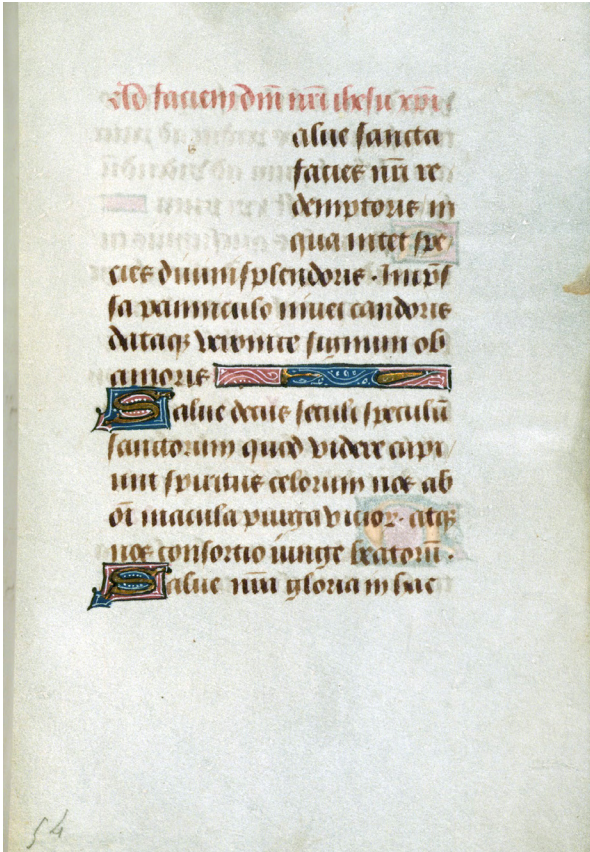 Ad faciem dm̄ nr̄i ihesu xpi
alue sancta
facies nr̄i re
demptoris in
qua nitet spe
cies diuini splendoris · Impres
sa panniculo niuei candoris
dataqꝫ veronice signum ob
amoris
Salue decus seculi speculū
sanctorum quod videre cupi
unt spiritus celorum nos ab
oī macula purga vicioꝝ · atqꝫ
nos consortio iunge beatorū ·
Salue nr̄a gloria in hac
54